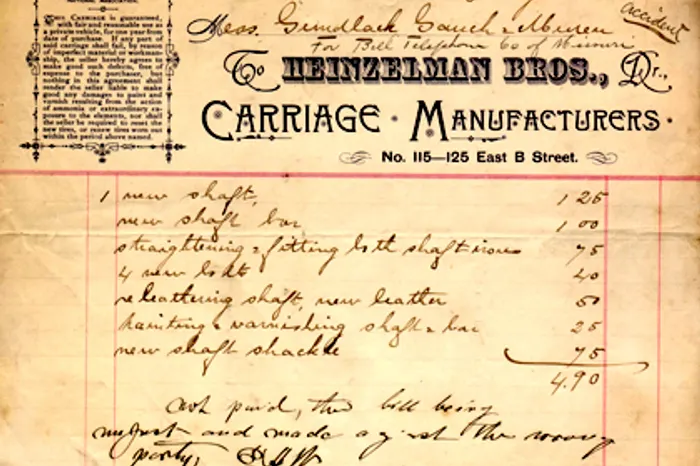 THIS CARRIAGE is guaranteed,
with fair and reasonable use as
a private vehicle, for one year from
date of purchase. If any part of
said carriage shall fail, by reason
of imperfect material or workman-
ship, the seller hereby agrees to
make good such defects, free of
expense to the purchaser, but
nothing in this agreement shall
render the seller liable to make
good any damages to paint and
varnish resulting from the action
of ammonia or extraordinary ex-
posure to the elements, nor shall
the seller be required to reset the
new tires, or renew tires worn out
within the period above named.
accident
Mess. Gundlach Gauch & 
For Bell Telephone Co of Missouri
To HEINZELMAN BROS., Dr.,
CARRIAGE · MANUFACTURERS ·
No. 115—125 East B Street.
1 new shaft, 1 25
new shaft bar 1 00
straightening & fitting both shaft irons 75
4 new bolts 40
releathering shaft, new leather 50
painting & varnishing shaft & bar 25
new shaft shackle 75
4.90
Not paid, this bill being
unjust and made against the wrong
party,